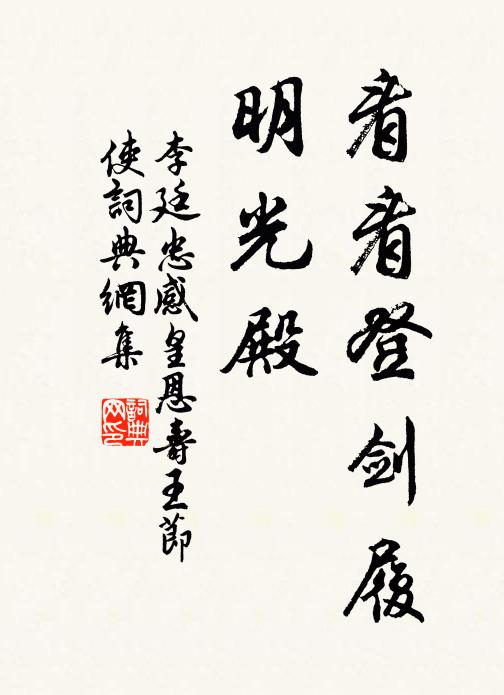 看看登劍履
明光殿
李廷忠感皇恩壽王節
使詞典網集
詞典
网印